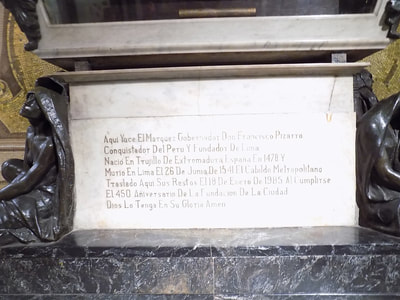 Aqui Yace El Marques Gobernador Don Francisco Pizarro
Conquistador Del Peru Y Fundador De Lima
Nació En Trujillo De Extremadura España En 1478 Y
Murio En Lima El 26 De Junio De 1541 El Cabildo Metropolitano
Traslado Aqui Sus Restos El 18 De Enero De 1985 Al Cumplirse
El 450 Aniversario De La Fundacion De La Ciudad
Dios Lo Tenga En Su Gloria Amen